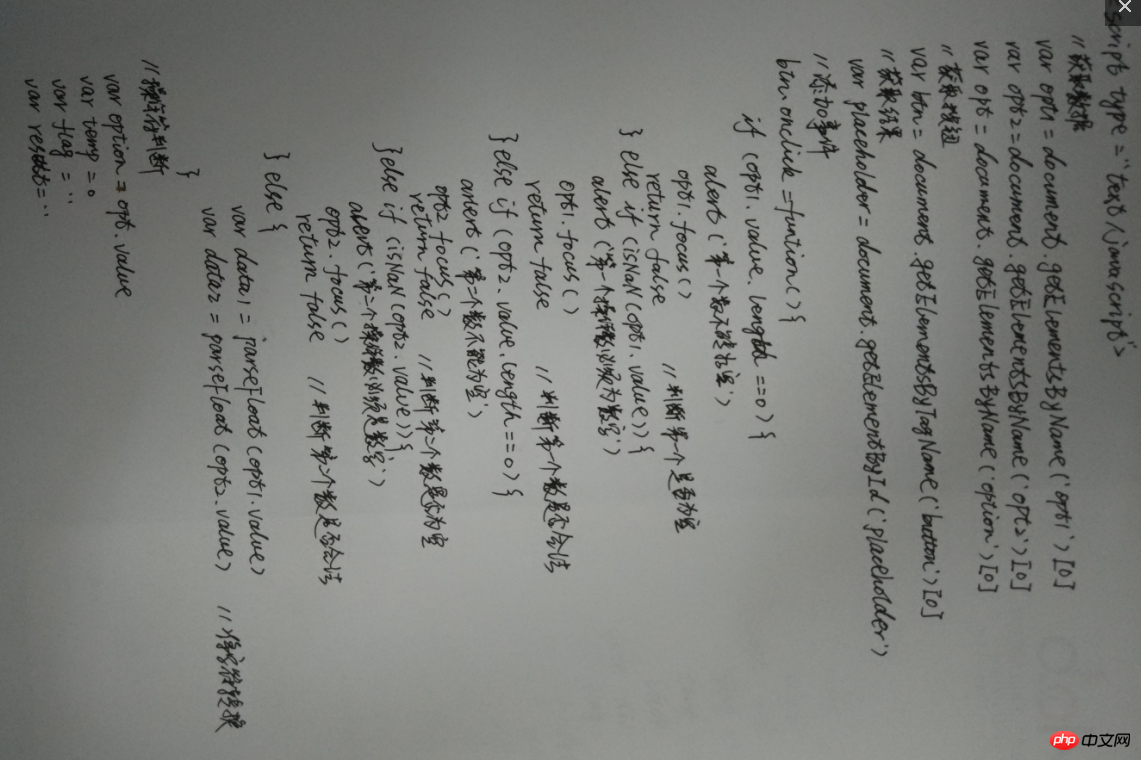 script type="text/javascript">
//获取数据
var opt1 = document.getElementsByName('opt1')[0]
var opt2 = document.getElementsByName('opt2')[0]
var opt = document.getElementsByName('option')[0]
//获取按钮
var btn = document.getElementsByTagName('button')[0]
//获取结果
var placeholder = document.getElementById('placeholder')
//添加事件
btn.onclick = funtion(){
if (opt1.value.length==0){
alert('第一个数不能为空')
opt1.focus()
return false //判断第一个是否为空
} else if (isNaN(opt1.value)){
alert('第一个操作数必须为数字')
opt1.focus()
return false //判断第一个数是否合法
} else if (opt2.value.length==0){
alert('第二个数不能为空')
opt2.focus()
return false //判断第二个数是否为空
} else if (isNaN(opt2.value)){
alert('第二个操作数必须是数字')
opt2.focus()
return false //判断第二个数是否合法
} else {
var data1 = parseFloat(opt1.value)
var data2 = parseFloat(opt2.value) //将字符转换
}
//操作符判断
var option = opt.value
var temp = 0
var flag = ''
var = ''
php 中文网